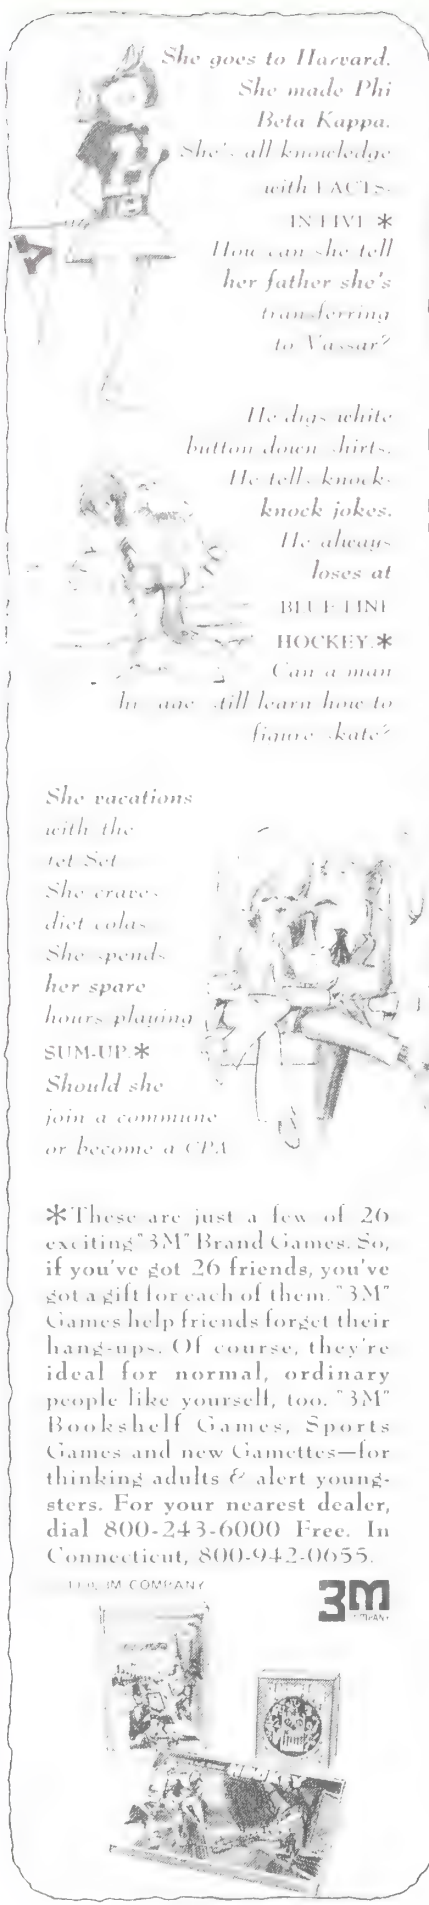 She goes to Harvard.
She made Phi
Beta Kappa.
She's all knowledge
with FACTS-
IN-FIVE.*
How can she tell
her father she's
transferring
to Vassar?
He digs white
button down shirts.
He tells knock-
knock jokes.
He always
loses at
BLUE LINE
HOCKEY.*
Can a man
his age still learn how to
figure skate?
She vacations
with the
Jet Set
She craves
diet colas
She spends
her spare
hours playing
SUM-UP.*
Should she
join a commune
or become a CPA
*These are just a few of 26
exciting "3M" Brand Games. So,
if you've got 26 friends, you've
got a gift for each of them. "3M"
Games help friends forget their
hang-ups. Of course, they're
ideal for normal, ordinary
people like yourself, too. "3M"
Bookshelf Games, Sports
Games and new Gamettes—for
thinking adults & alert young-
sters. For your nearest dealer,
dial 800-243-6000 Free. In
Connecticut, 800-942-0655.
THE 3M COMPANY
3M
COMPANY